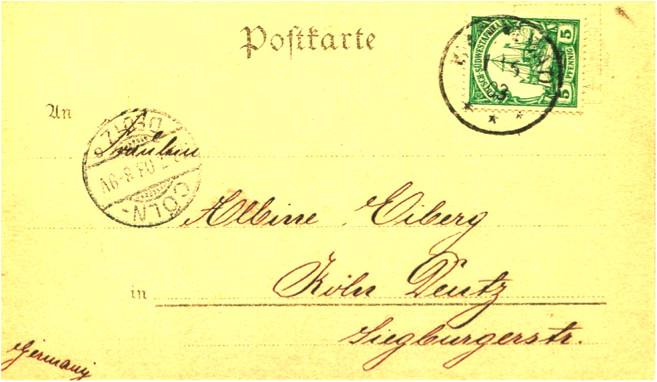 Postkarte
DEUTSCH-SÜDWESTAFRIKA
5 PFENNIG 5
An
Fräulein
CÖLN-
DEUTZ
03.8-9V
Albine Eiberg
in Köln Deutz
Siegburgerstr.
Germany